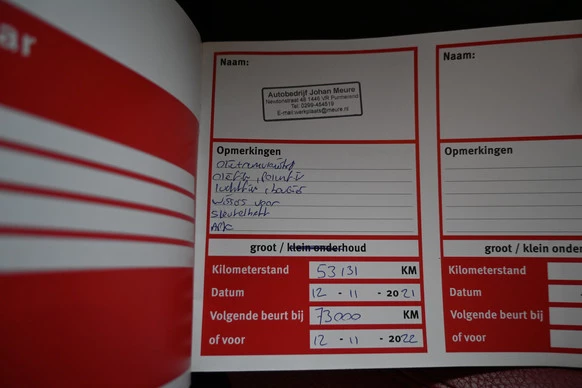 ar
Naam:
Autobedrijf Johan Meure
Neutronstraat 49 1446 VR Purmerend
Tel: 0299-454519
E-mail:werkplaats@meure.nl
Opmerkingen
Oliefilter, Pollenfilter
Luchtfilter, bougies
wissers voor
sleutelbatt
APK
groot / klein onderhoud
Kilometerstand 53131 KM
Datum 12 - 11 - 2021
Volgende beurt bij 73000 KM
of voor 12 - 11 - 2022
Naam:
Opmerkingen
groot / klein onder
Kilometerstand
Datum
Volgende beurt bij
of voor